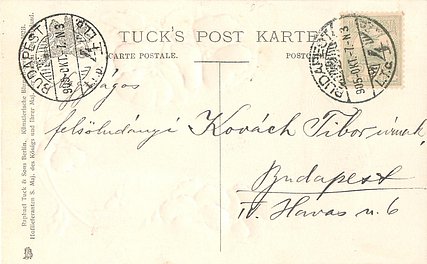 TUCK'S POST KARTE
CARTE POSTALE.
BUDAPEST
905 OKT. 7. N 3
BUDAPEST
905 OKT. 7. N 3
felsőludányi Kovách Tibor úrnak,
Budapest
IV. Havas u. 6
Raphael Tuck & Sons Berlin. Künstlerische
Hoflieferanten S. Maj. des Königs und Ihrer Maj.